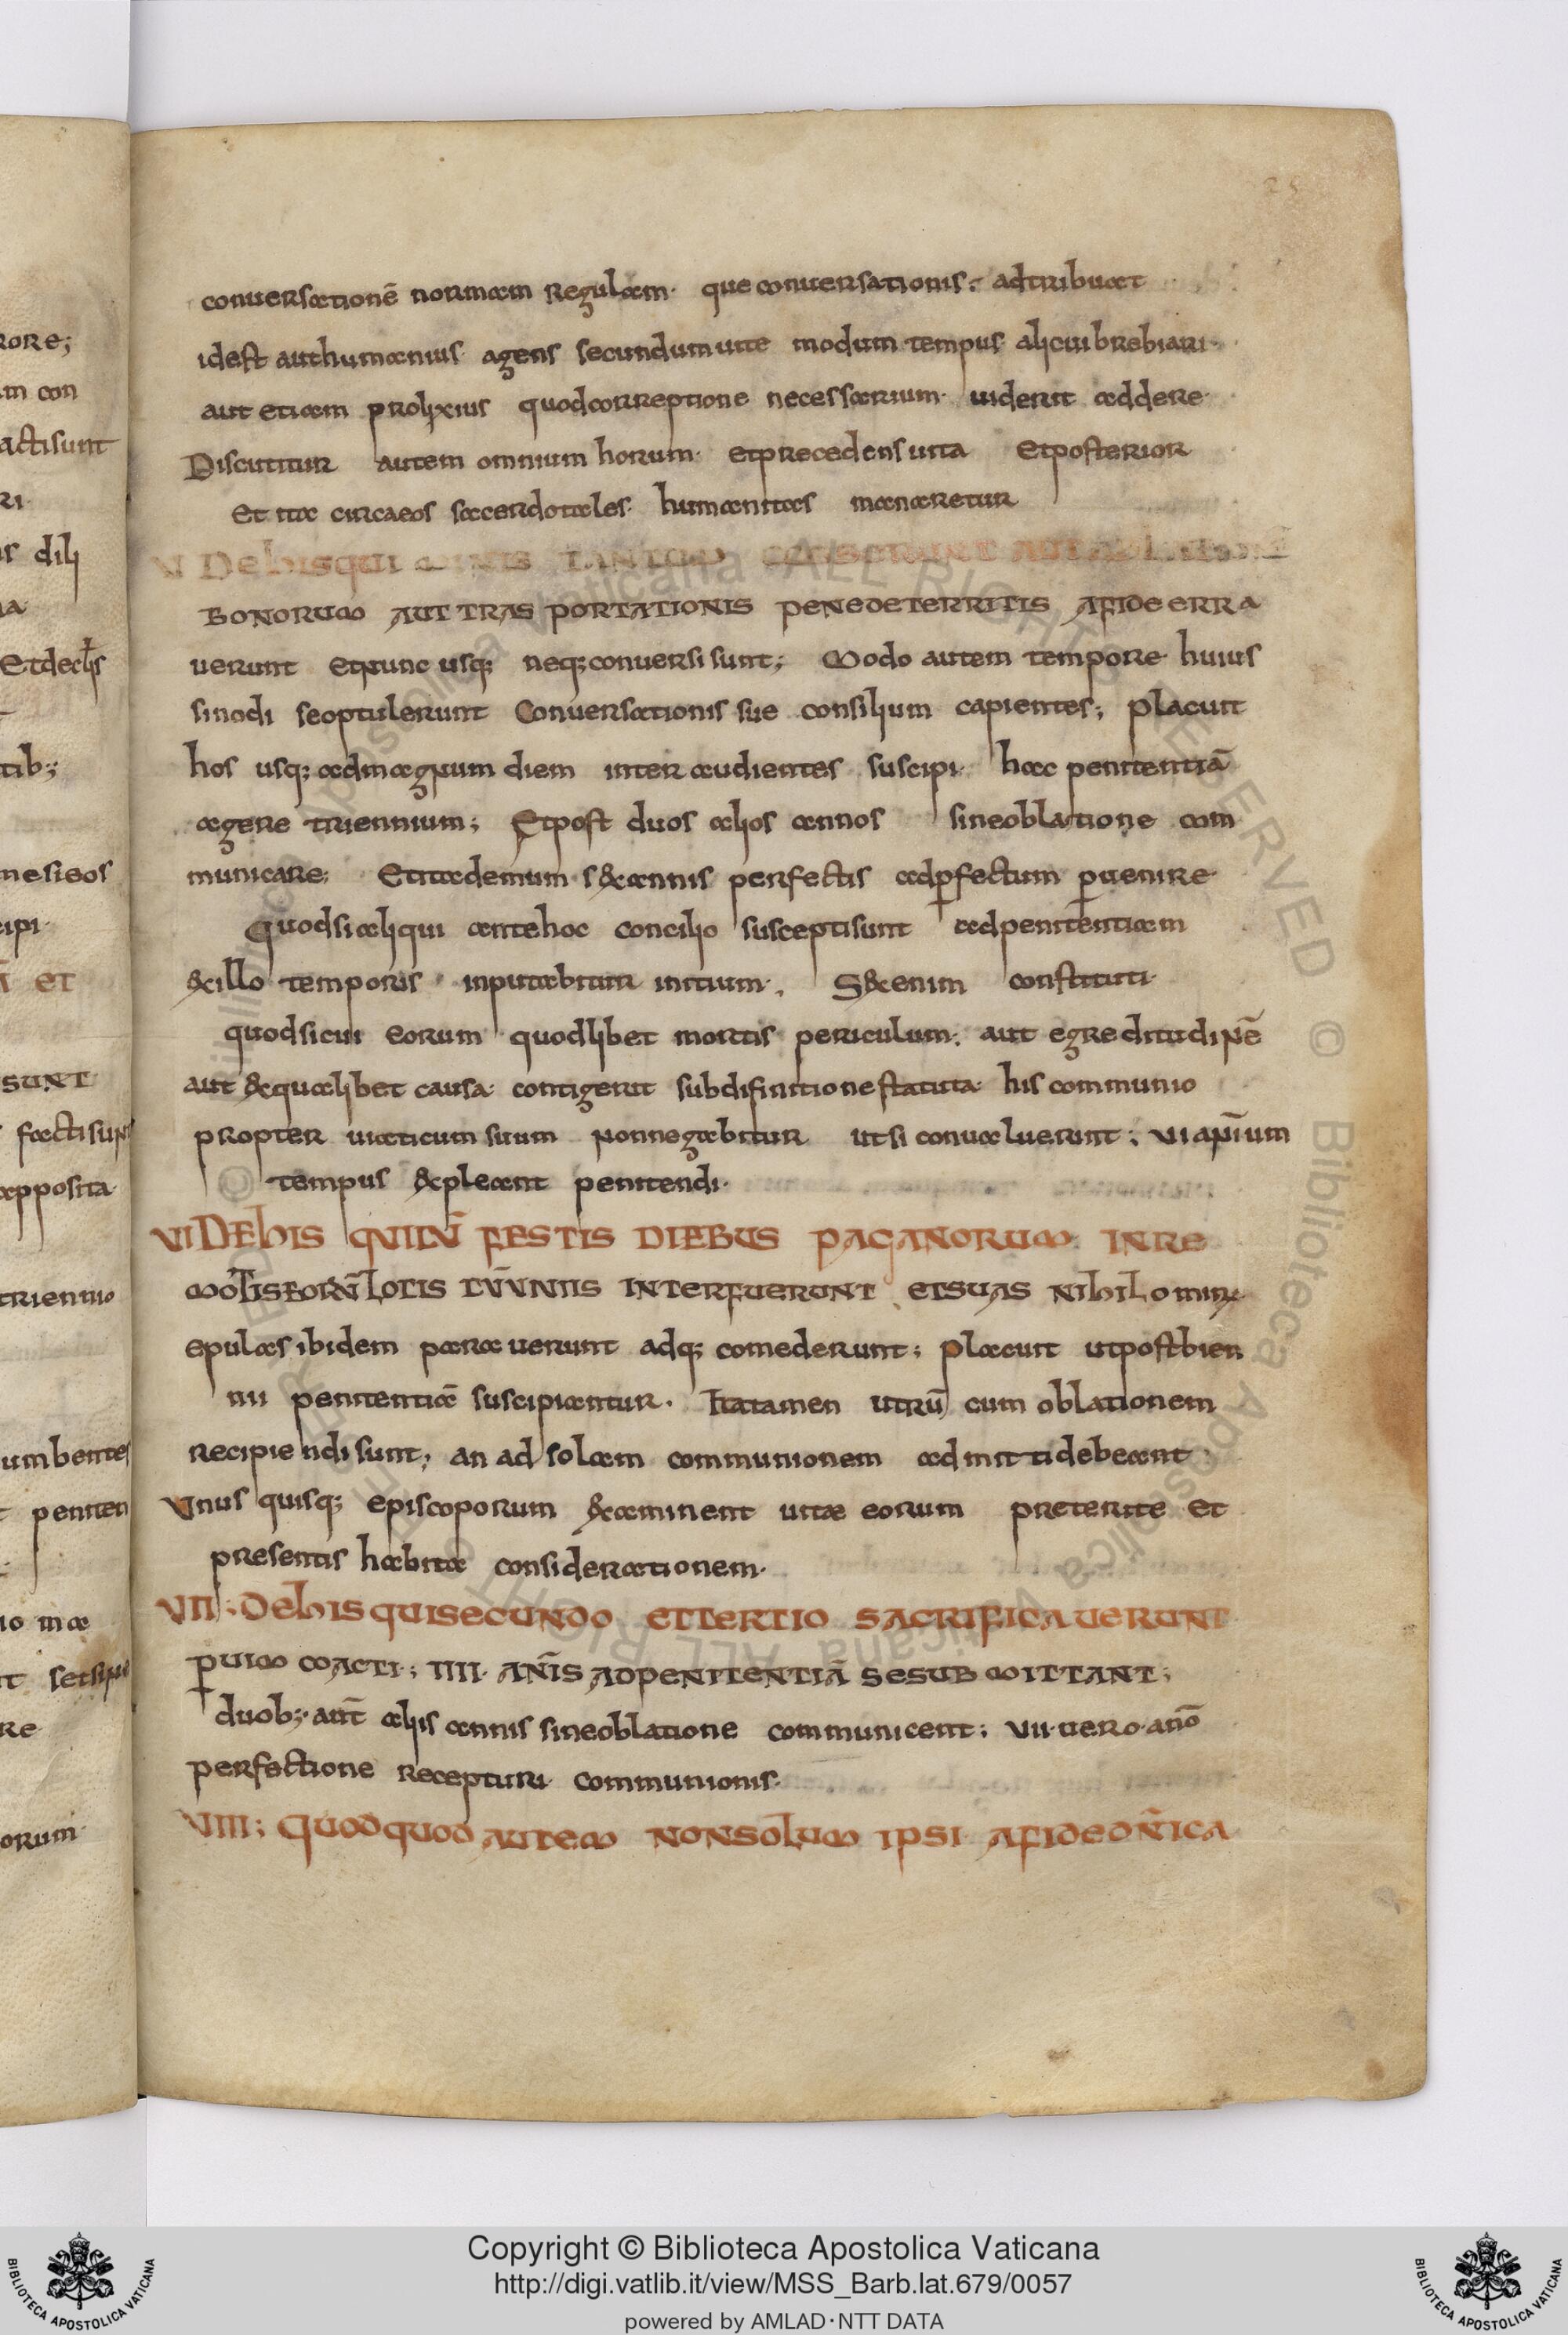 25
conuersationē normam regulam· que conuersationis; adtribuaet
idest aut humanius· agens secundum uite modum tempus alicui brebiari·
aut etiam prolixius quod correptione necessarium· uiderit addere·
Discutitur autem omnium horum· et precedens uita et posterior
et ita circa eos sacerdotales· humanitas manaretur
V De his qui minis tantum cesserunt aut ablatione
bonorum aut trasportationis pene deterritis a fide erra
uerunt et nunc usq; neq; conuersi sunt; Modo autem tempore huius
sinodi se optulerunt Conuersationis sue consilium capientes; placuit
hos usq; ad magnum diem inter audientes suscipi· hac penitentiā
agere triennium; Et post duos alios annos sine oblatione com
municare; Et ita demum s&annis perfectis ad p̱fectum p̱uenire·
Quod si aliqui ante hoc concilio suscepti sunt ad penitentiam
&illo temporis inputabitur initium· S&enim constituti·
quod si cui eorum quodlibet mortis periculum· aut egreditudinē
aut &qualibet causa· contigerit sub difinitione statuta· his communio
propter uiaticum suum non negabitur ut si conualuerint; VI anīum
tempus &pleant penitendi·
VI De his qui in festis diebus paganorum· in re
motis eorū locis conuiuiis interfuerunt et suas nihilominus
epulas ibidem parauerunt adq; comederunt; placuit ut post bien
nii penitentiā suscipiantur· Ita tamen utrū cum oblationem
recipiendi sunt; an ad solam communionem admitti debeant·
Vnus quisq; episcoporum &aminent uitae eorum preterite et
presentis habita considerationem·
VII; De his qui secundo et tertio sacrificauerunt
p̱ uim coacti; IIII· an̄is ad penitentiā se submittant;
duob;· aut̄ aliis annis sine oblatione communicent; VII· uero· anō
perfectione recepturi communionis·
VIII; Quodquod autem non solum ipsi a fide dn̄ica
rore;
m con
acti sunt
ri·
r dili
a
Et decl̄is
tib;
nesieos
cipi·
ā et
sunt
facti sunt
apposita·
triennio
umbentes
t peniten
io ma
re
orum·
Copyright © Biblioteca Apostolica Vaticana
http://digi.vatlib.it/view/MSS_Barb.lat.679/0057
powered by AMLAD·NTT DATA
BIBLIOTECA APOSTOLICA VATICANA
BIBLIOTECA APOSTOLICA VATICANA